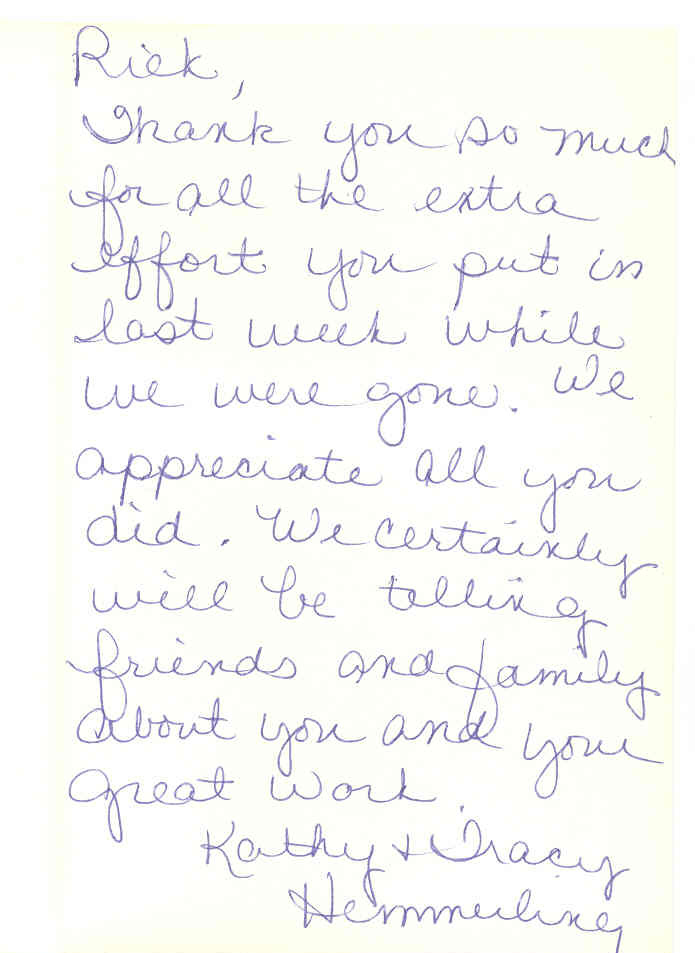 Rick,
Thank you so much
for all the extra
effort you put in
last week while
we were gone. We
appreciate all you
did. We certainly
will be telling
friends and family
about you and your
great work.
Kathy & Tracy
Hemmerling